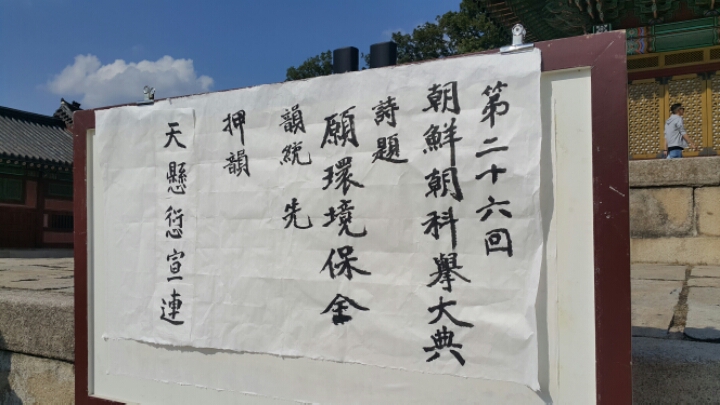 第二十六回
朝鮮朝科擧大典
詩題
願環境保全
韻統 先
押韻
天懸愆宣連